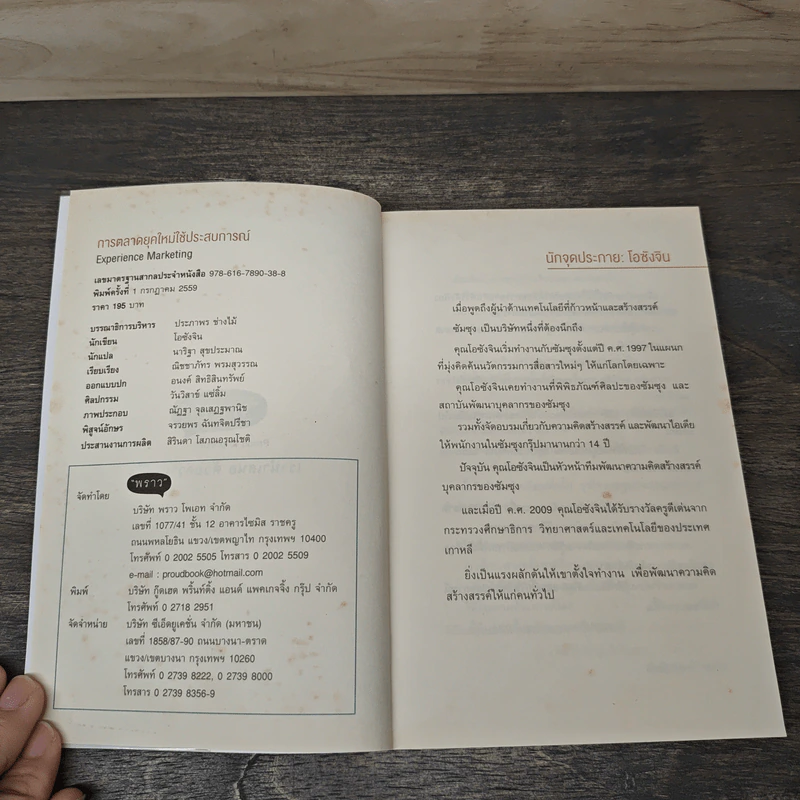 การตลาดยุคใหม่ใช้ประสบการณ์
Experience Marketing
เลขมาตรฐานสากลประจำหนังสือ 978-616-7890-38-8
พิมพ์ครั้งที่ 1 กรกฎาคม 2559
ราคา 195 บาท
บรรณาธิการบริหาร ประภาพร ช่างไม้
นักเขียน โอซังจิน
นักแปล นาริฐา สุขประมาณ
เรียบเรียง ณิชชาภัทร พรมสุวรรณ
ออกแบบปก อนงค์ สิทธิสินทรัพย์
ศิลปกรรม วันวิสาข์ แซ่ลิ้ม
ภาพประกอบ ณัฏฐา จุลเสฏฐพานิช
พิสูจน์อักษร จรวยพร ฉันทจิตปรีชา
ประสานงานการผลิต สิรินดา โสภณอรุณโชติ
จัดทำโดย "พราว"
บริษัท พราว โพเอท จำกัด
เลขที่ 1077/41 ชั้น 12 อาคารไซมิส ราชครู
ถนนพหลโยธิน แขวง/เขตพญาไท กรุงเทพฯ 10400
โทรศัพท์ 0 2002 5505 โทรสาร 0 2002 5509
e-mail : proudbook@hotmail.com
พิมพ์ บริษัท กู๊ดเฮด พริ้นท์ติ้ง แอนด์ แพคเกจจิ้ง กรุ๊ป จำกัด
โทรศัพท์ 0 2718 2951
จัดจำหน่าย บริษัท ซีเอ็ดยูเคชั่น จำกัด (มหาชน)
เลขที่ 1858/87-90 ถนนบางนา-ตราด
แขวง/เขตบางนา กรุงเทพฯ 10260
โทรศัพท์ 0 2739 8222, 0 2739 8000
โทรสาร 0 2739 8356-9
นักจุดประกาย: โอซังจิน
เมื่อพูดถึงผู้นำด้านเทคโนโลยีที่ก้าวหน้าและสร้างสรรค์
ซัมซุง เป็นบริษัทหนึ่งที่ต้องนึกถึง
คุณโอซังจินเริ่มทำงานกับซัมซุงตั้งแต่ปี ค.ศ. 1997 ในแผนก
ที่มุ่งคิดค้นนวัตกรรมการสื่อสารใหม่ๆ ให้แก่โลกโดยเฉพาะ
คุณโอซังจินเคยทำงานที่พิพิธภัณฑ์ศิลปะของซัมซุง และ
สถาบันพัฒนาบุคลากรของซัมซุง
รวมทั้งจัดอบรมเกี่ยวกับความคิดสร้างสรรค์ และพัฒนาไอเดีย
ให้พนักงานในซัมซุงกรุ๊ปมานานกว่า 14 ปี
ปัจจุบัน คุณโอซังจินเป็นหัวหน้าทีมพัฒนาความคิดสร้างสรรค์
บุคลากรของซัมซุง
และเมื่อปี ค.ศ. 2009 คุณโอซังจินได้รับรางวัลครูดีเด่นจาก
กระทรวงศึกษาธิการ วิทยาศาสตร์และเทคโนโลยีของประเทศ
เกาหลี
ยิ่งเป็นแรงผลักดันให้เขาตั้งใจทำงาน เพื่อพัฒนาความคิด
สร้างสรรค์ให้แก่คนทั่วไป